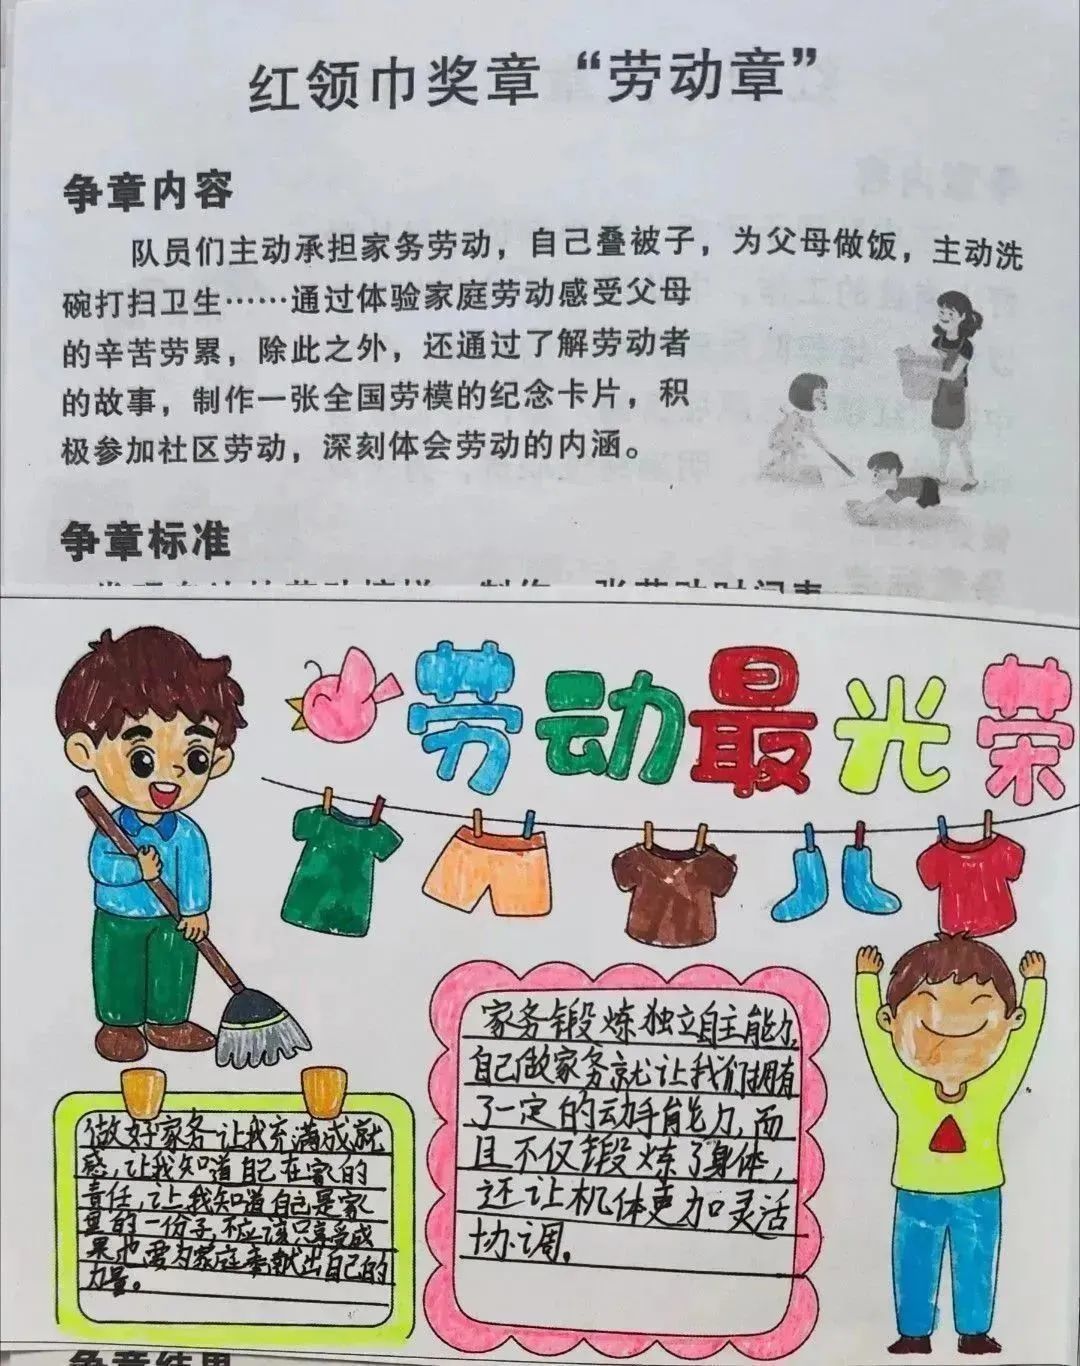 红领巾奖章“劳动章”
争章内容
队员们主动承担家务劳动，自己叠被子，为父母做饭，主动洗
碗打扫卫生……通过体验家庭劳动感受父母
的辛苦劳累，除此之外，还通过了解劳动者
的故事，制作一张全国劳模的纪念卡片，积
极参加社区劳动，深刻体会劳动的内涵。
争章标准
劳动最光荣
做好家务让我充满成就
感，让我知道自己在家的
责任，让我知道自己是家
里的一份子，不应该只享受成
果也要为家庭奉献出自己的
力量。
家务锻炼独立自主能力，
自己做家务就让我们拥有
了一定的动手能力，而
且不仅锻炼了身体，
还让机体更加灵活
协调。